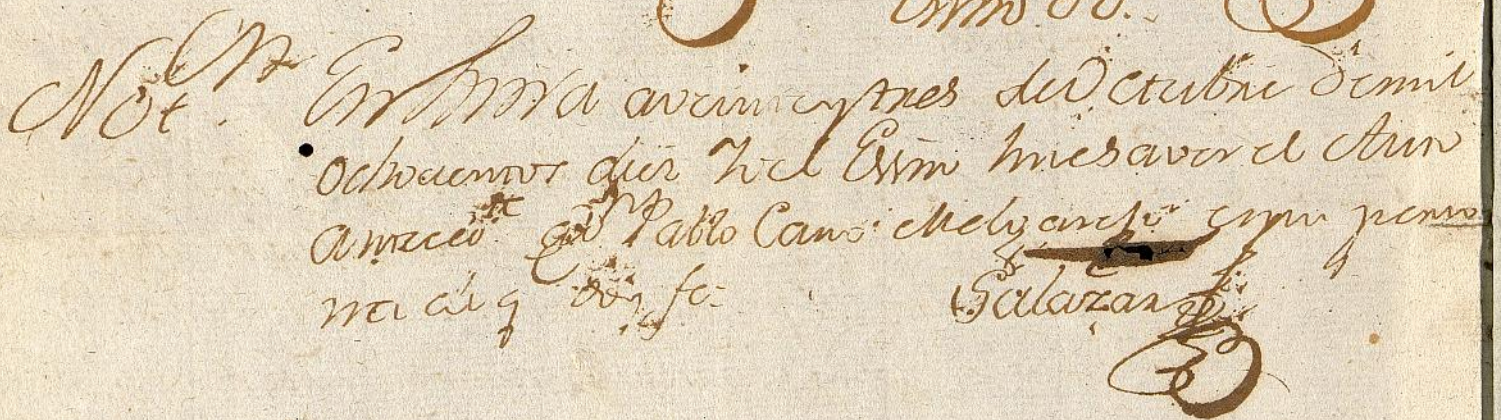 Not.n En Lima a veinte y tres de Octubre de mil
ochocientos diez Yo el Essno hice saver el Auto
antecedte a Dn Pablo Cano Melgarejo en su perso
na de q doy fe
Salazar